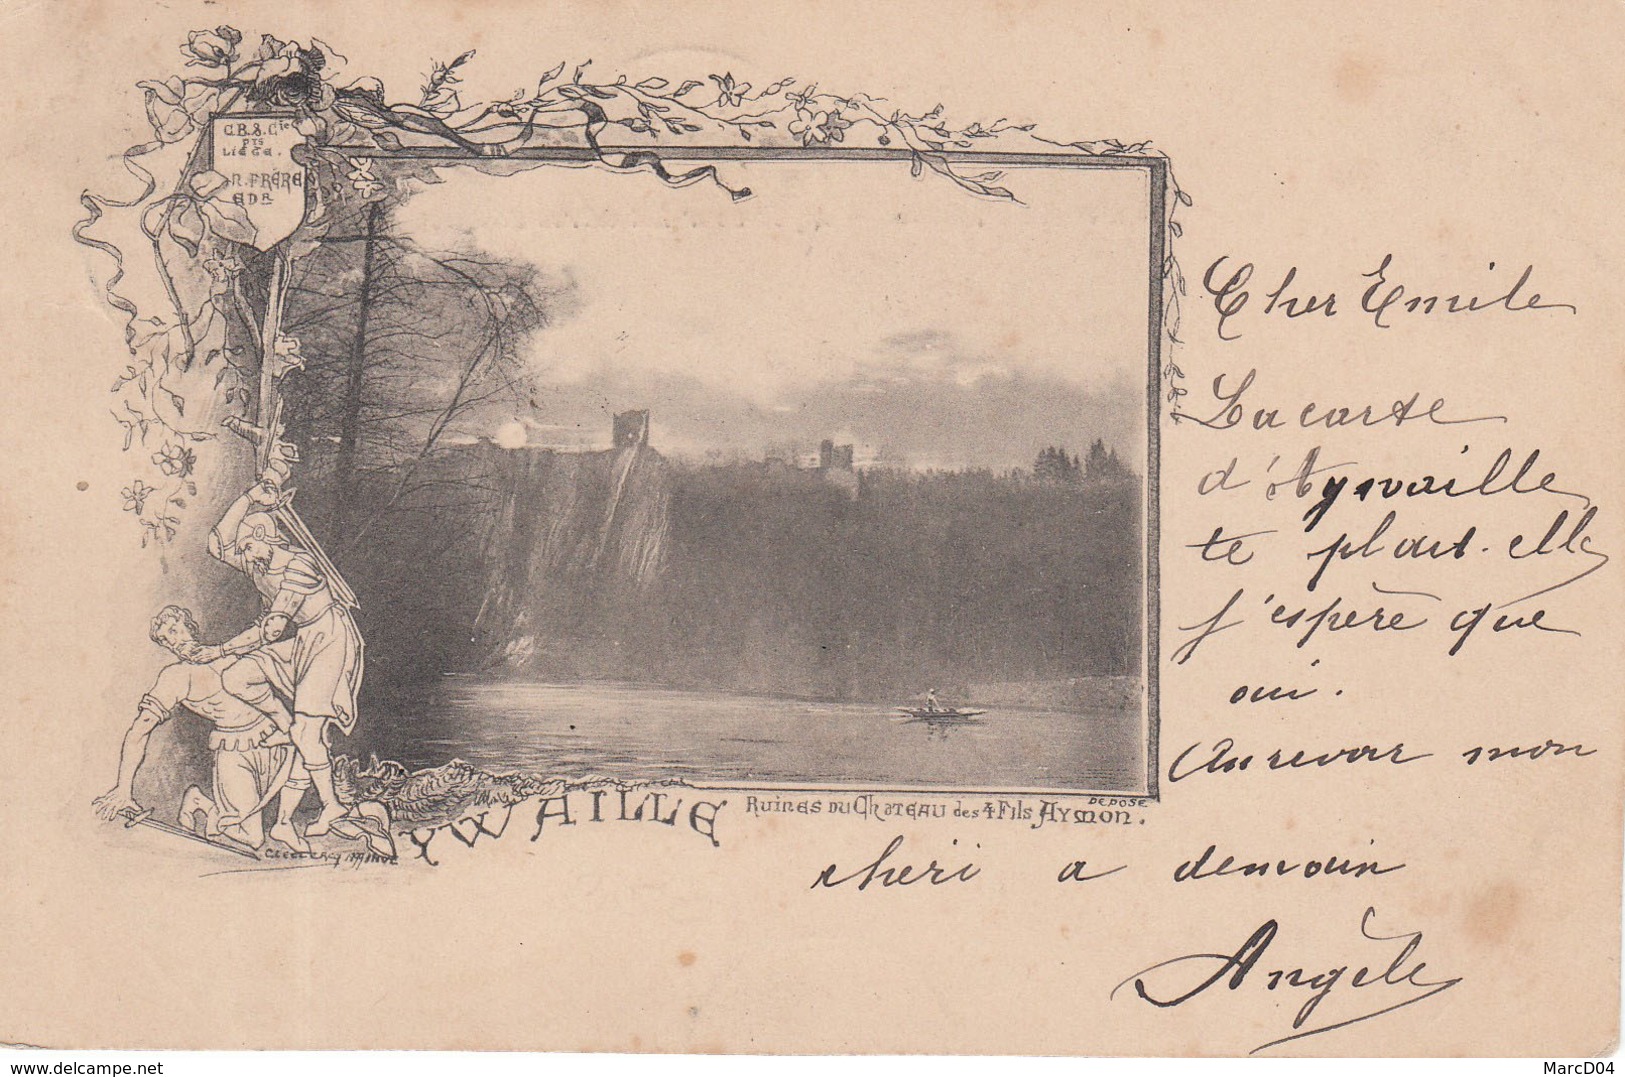 C.B.&.Cie
pts
LIÉGE.
N. FRÈRES
EDR
Cher Emile
La carte
d'Aywaille
te plait-elle
j'espère que
oui.
Au revoir mon
cheri a demain
Angèle
DEPOSÉ
YWAILLE RUINES DU CHATEAU des 4 Fils AYMON.
delcampe.net
MarcD04